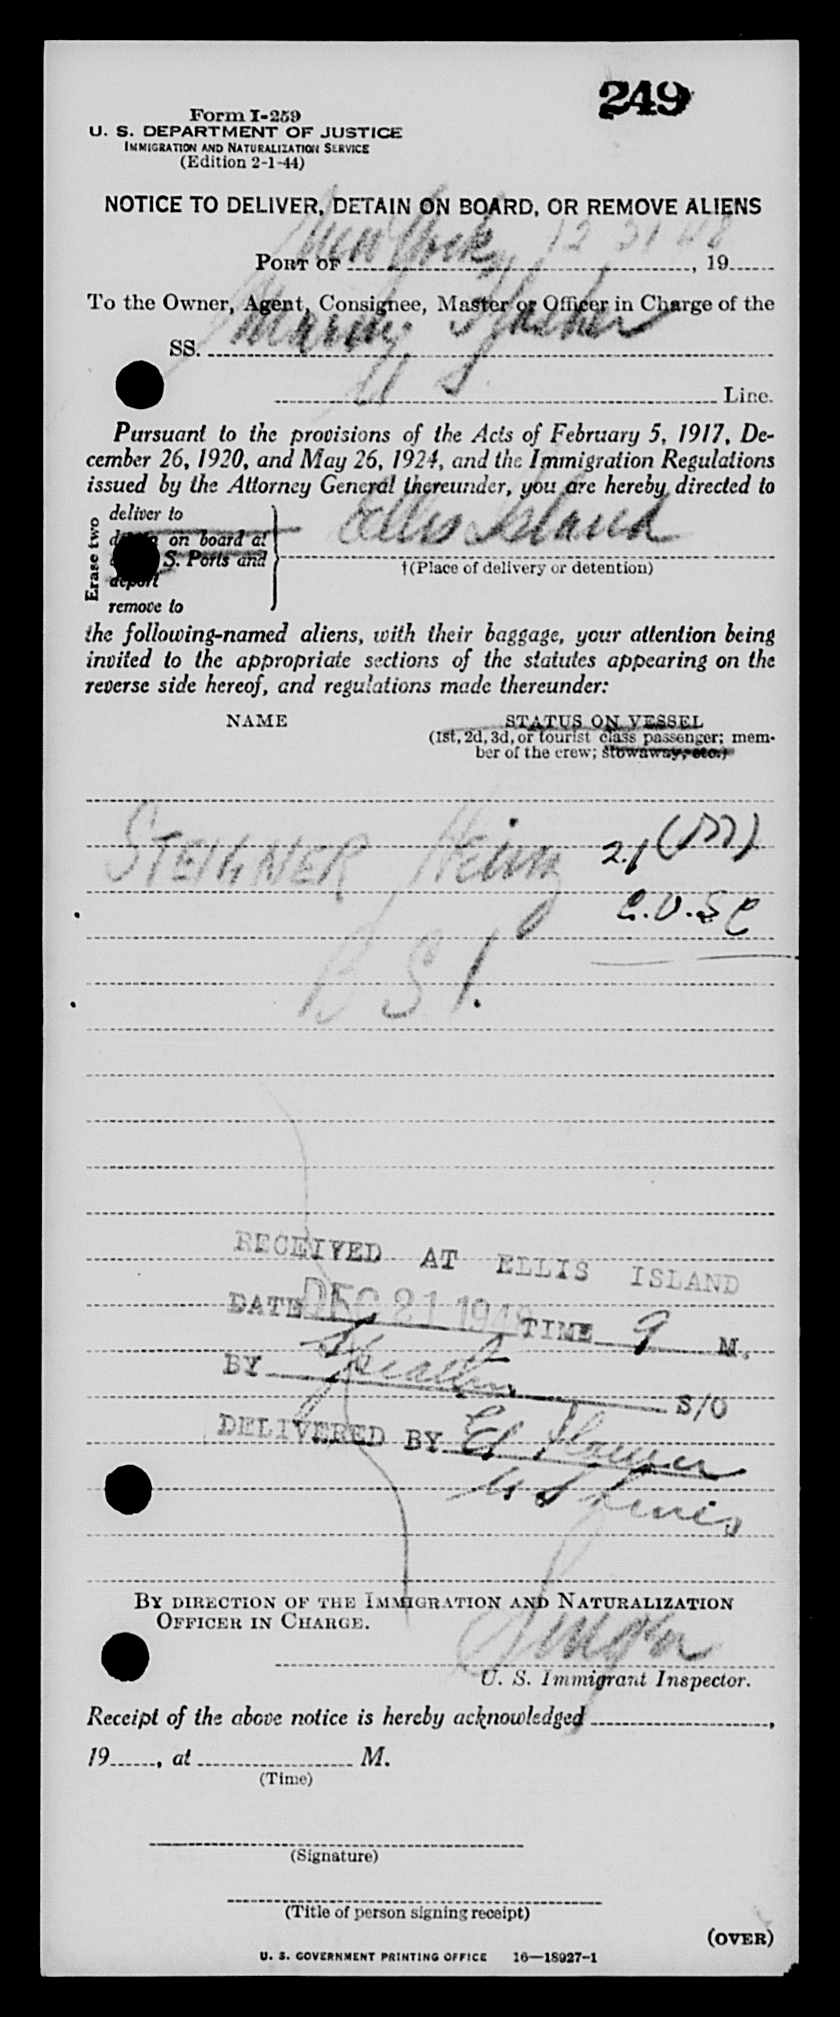 249
Form I-259
U. S. DEPARTMENT OF JUSTICE
IMMIGRATION AND NATURALIZATION SERVICE
(Edition 2-1-44)
NOTICE TO DELIVER, DETAIN ON BOARD, OR REMOVE ALIENS
PORT OF New York, 12 21 48, 19
To the Owner, Agent, Consignee, Master or Officer in Charge of the
SS. Marine
Line.
Pursuant to the provisions of the Acts of February 5, 1917, De-
cember 26, 1920, and May 26, 1924, and the Immigration Regulations
issued by the Attorney General thereunder, you are hereby directed to
Erase two
deliver to
on board at
S. Ports and
deport
remove to
Ellis Island
†(Place of delivery or detention)
the following-named aliens, with their baggage, your attention being
invited to the appropriate sections of the statutes appearing on the
reverse side hereof, and regulations made thereunder:
NAME STATUS ON VESSEL
(1st, 2d, 3d, or tourist class passenger; mem-
ber of the crew; stowaway, etc.)
STEIGNER Heinz 21 (M)
B S I.
RECEIVED AT ELLIS ISLAND
DATE DEC 21 1948 TIME 9 M.
BY S/O
DELIVERED BY Ed
U S Lines
BY DIRECTION OF THE IMMIGRATION AND NATURALIZATION
OFFICER IN CHARGE.
U. S. Immigrant Inspector.
Receipt of the above notice is hereby acknowledged ,
19 , at M.
(Time)
(Signature)
(Title of person signing receipt)
(OVER)
U. S. GOVERNMENT PRINTING OFFICE 16—18927-1